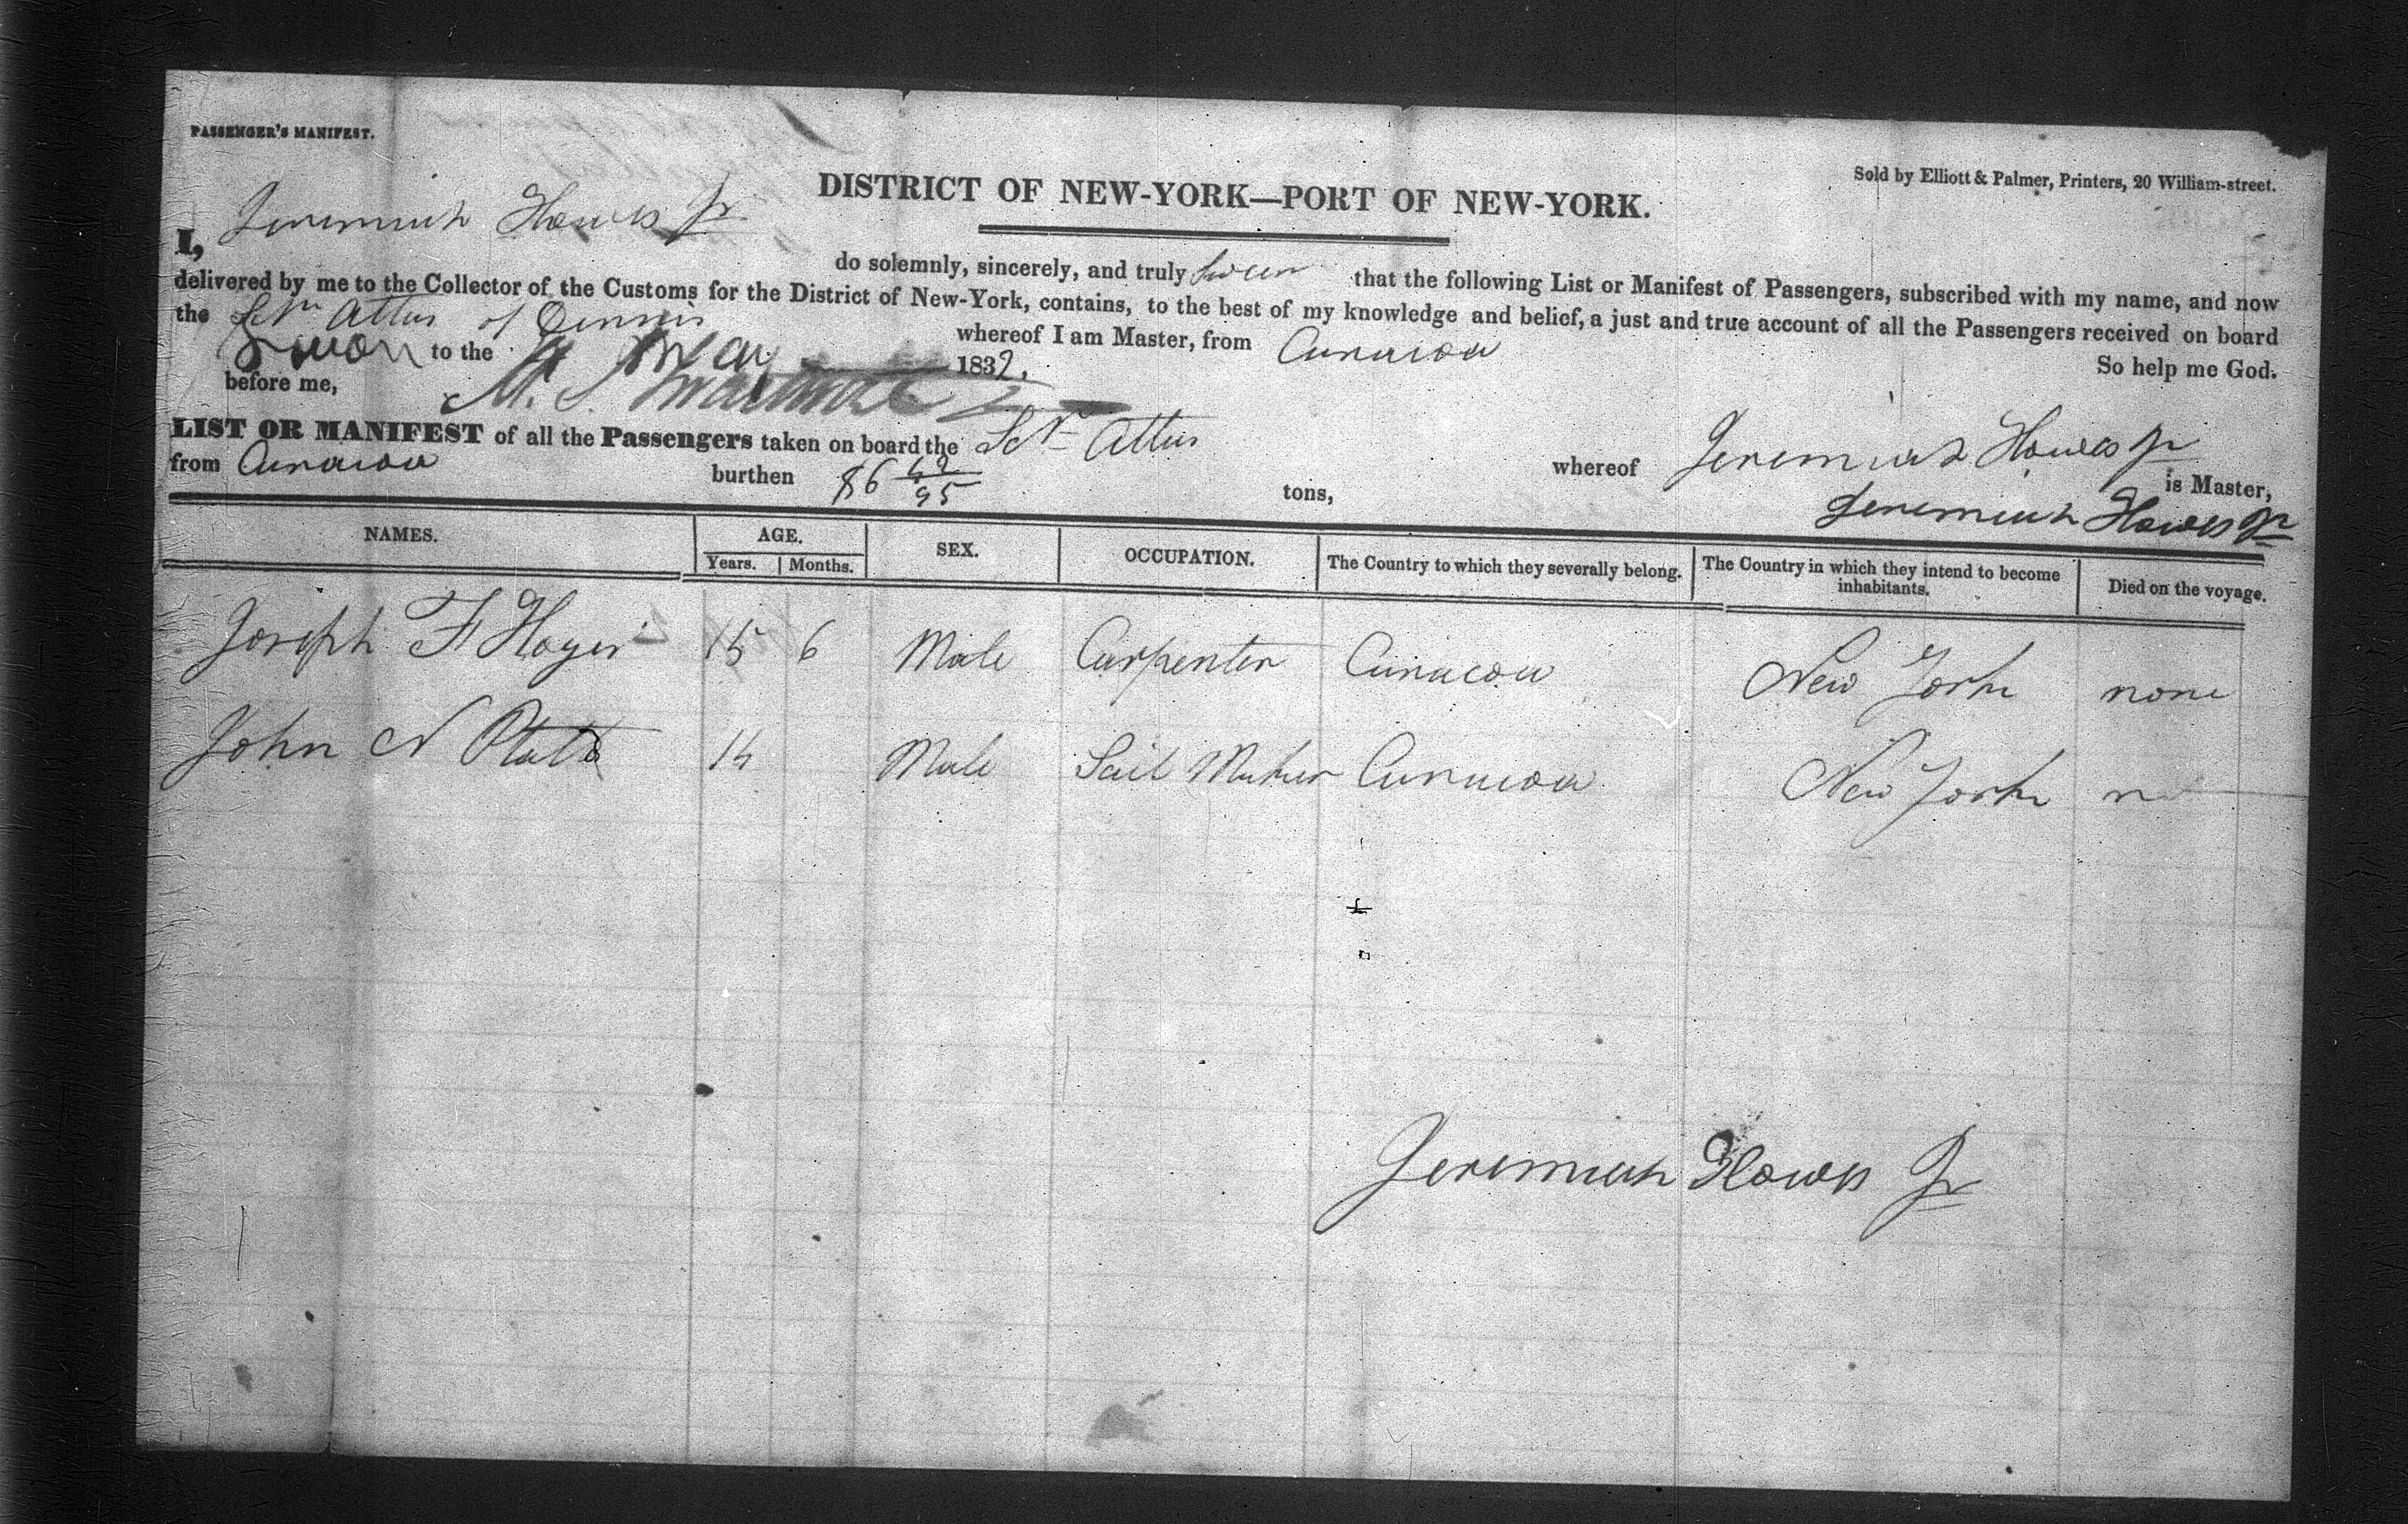 PASSENGER'S MANIFEST.
Sold by Elliott & Palmer, Printers, 20 William-street.
DISTRICT OF NEW-YORK—PORT OF NEW-YORK.
I, Jeremiah Howes Jr do solemnly, sincerely, and truly swear that the following List or Manifest of Passengers, subscribed with my name, and now
delivered by me to the Collector of the Customs for the District of New-York, contains, to the best of my knowledge and belief, a just and true account of all the Passengers received on board
the Schr Attus of Dennis whereof I am Master, from Curacoa
So help me God.
Sworn to the May 1839.
before me,
LIST OR MANIFEST of all the Passengers taken on board the Schr Attus whereof Jeremiah Howes Jr is Master,
from Curacoa burthen 86 42/95 tons,
Jeremiah Howes Jr
NAMES. AGE. SEX. OCCUPATION. The Country to which they severally belong. The Country in which they intend to become inhabitants. Died on the voyage.
Years. Months.
Joseph F Hoyer 15 6 Male Carpenter Curacoa New York none
John N 14 Male Sail Maker Curacoa New York
Jeremiah Howes Jr